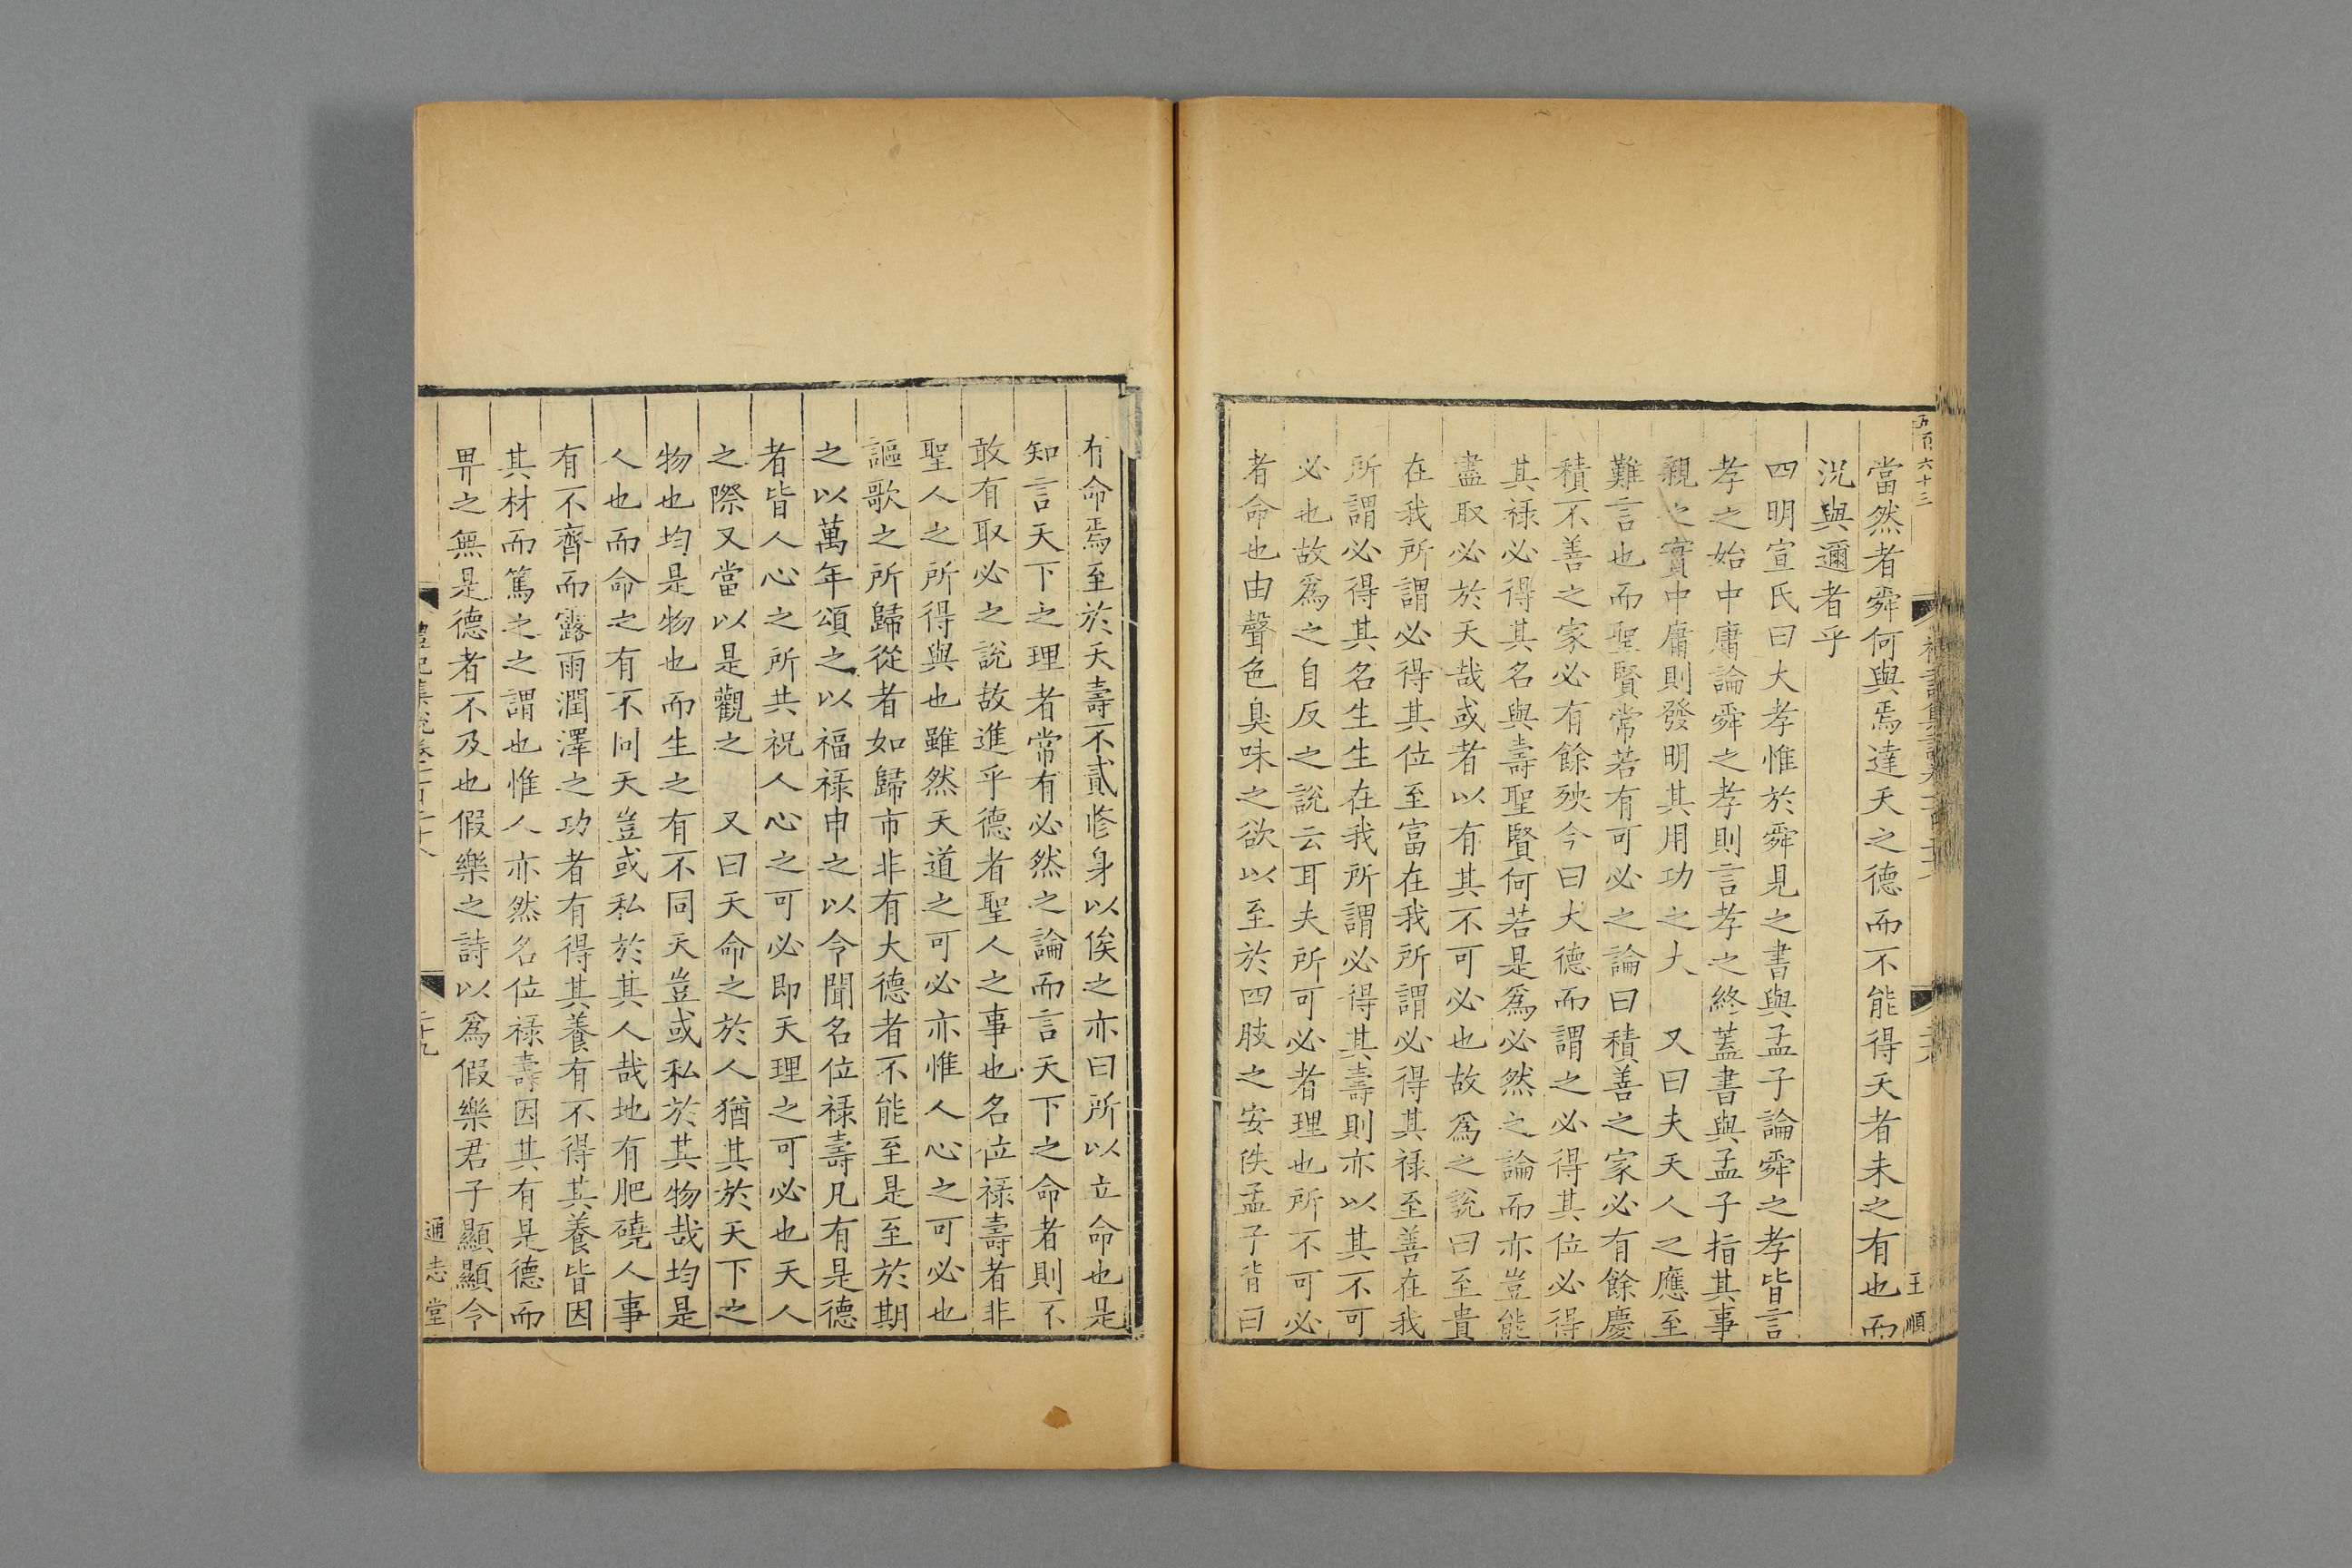 五百六十三
王順
當然者舜何與焉達天之德而不能得天者未之有也而
況與邇者乎
四明宣氏曰大孝惟於舜見之書與孟子論舜之孝皆言
孝之始中庸論舜之孝則言孝之終蓋書與孟子指其事
親之實中庸則發明其用功之大　又曰夫天人之應至
難言也而聖賢常若有可必之論曰積善之家必有餘慶
積不善之家必有餘殃今曰大德而謂之必得其位必得
其祿必得其名與壽聖賢何若是爲必然之論而亦豈能
盡取必於天哉或者以有其不可必也故爲之說曰至貴
在我所謂必得其位至富在我所謂必得其祿至善在我
所謂必得其名生生在我所謂必得其壽則亦以其不可
必也故爲之自反之說云耳夫所可必者理也所不可必
者命也由聲色臭味之欲以至於四肢之安佚孟子皆曰
有命焉至於夭壽不貳修身以俟之亦曰所以立命也是
知言天下之理者常有必然之論而言天下之命者則不
敢有取必之說故進乎德者聖人之事也名位祿壽者非
聖人之所得與也雖然天道之可必亦惟人心之可必也
謳歌之所歸從者如歸市非有大德者不能至是至於期
之以萬年頌之以福祿申之以令聞名位祿壽凡有是德
者皆人心之所共祝人心之可必即天理之可必也天人
之際又當以是觀之　又曰天命之於人猶其於天下之
物也均是物也而生之有不同天豈或私於其物哉均是
人也而命之有不同天豈或私於其人哉地有肥磽人事
有不齊而露雨潤澤之功者有得其養有不得其養皆因
其材而篤之之謂也惟人亦然名位祿壽因其有是德而
畀之無是德者不及也假樂之詩以爲假樂君子顯顯令
禮記集說卷一百二十八
二十九
通志堂